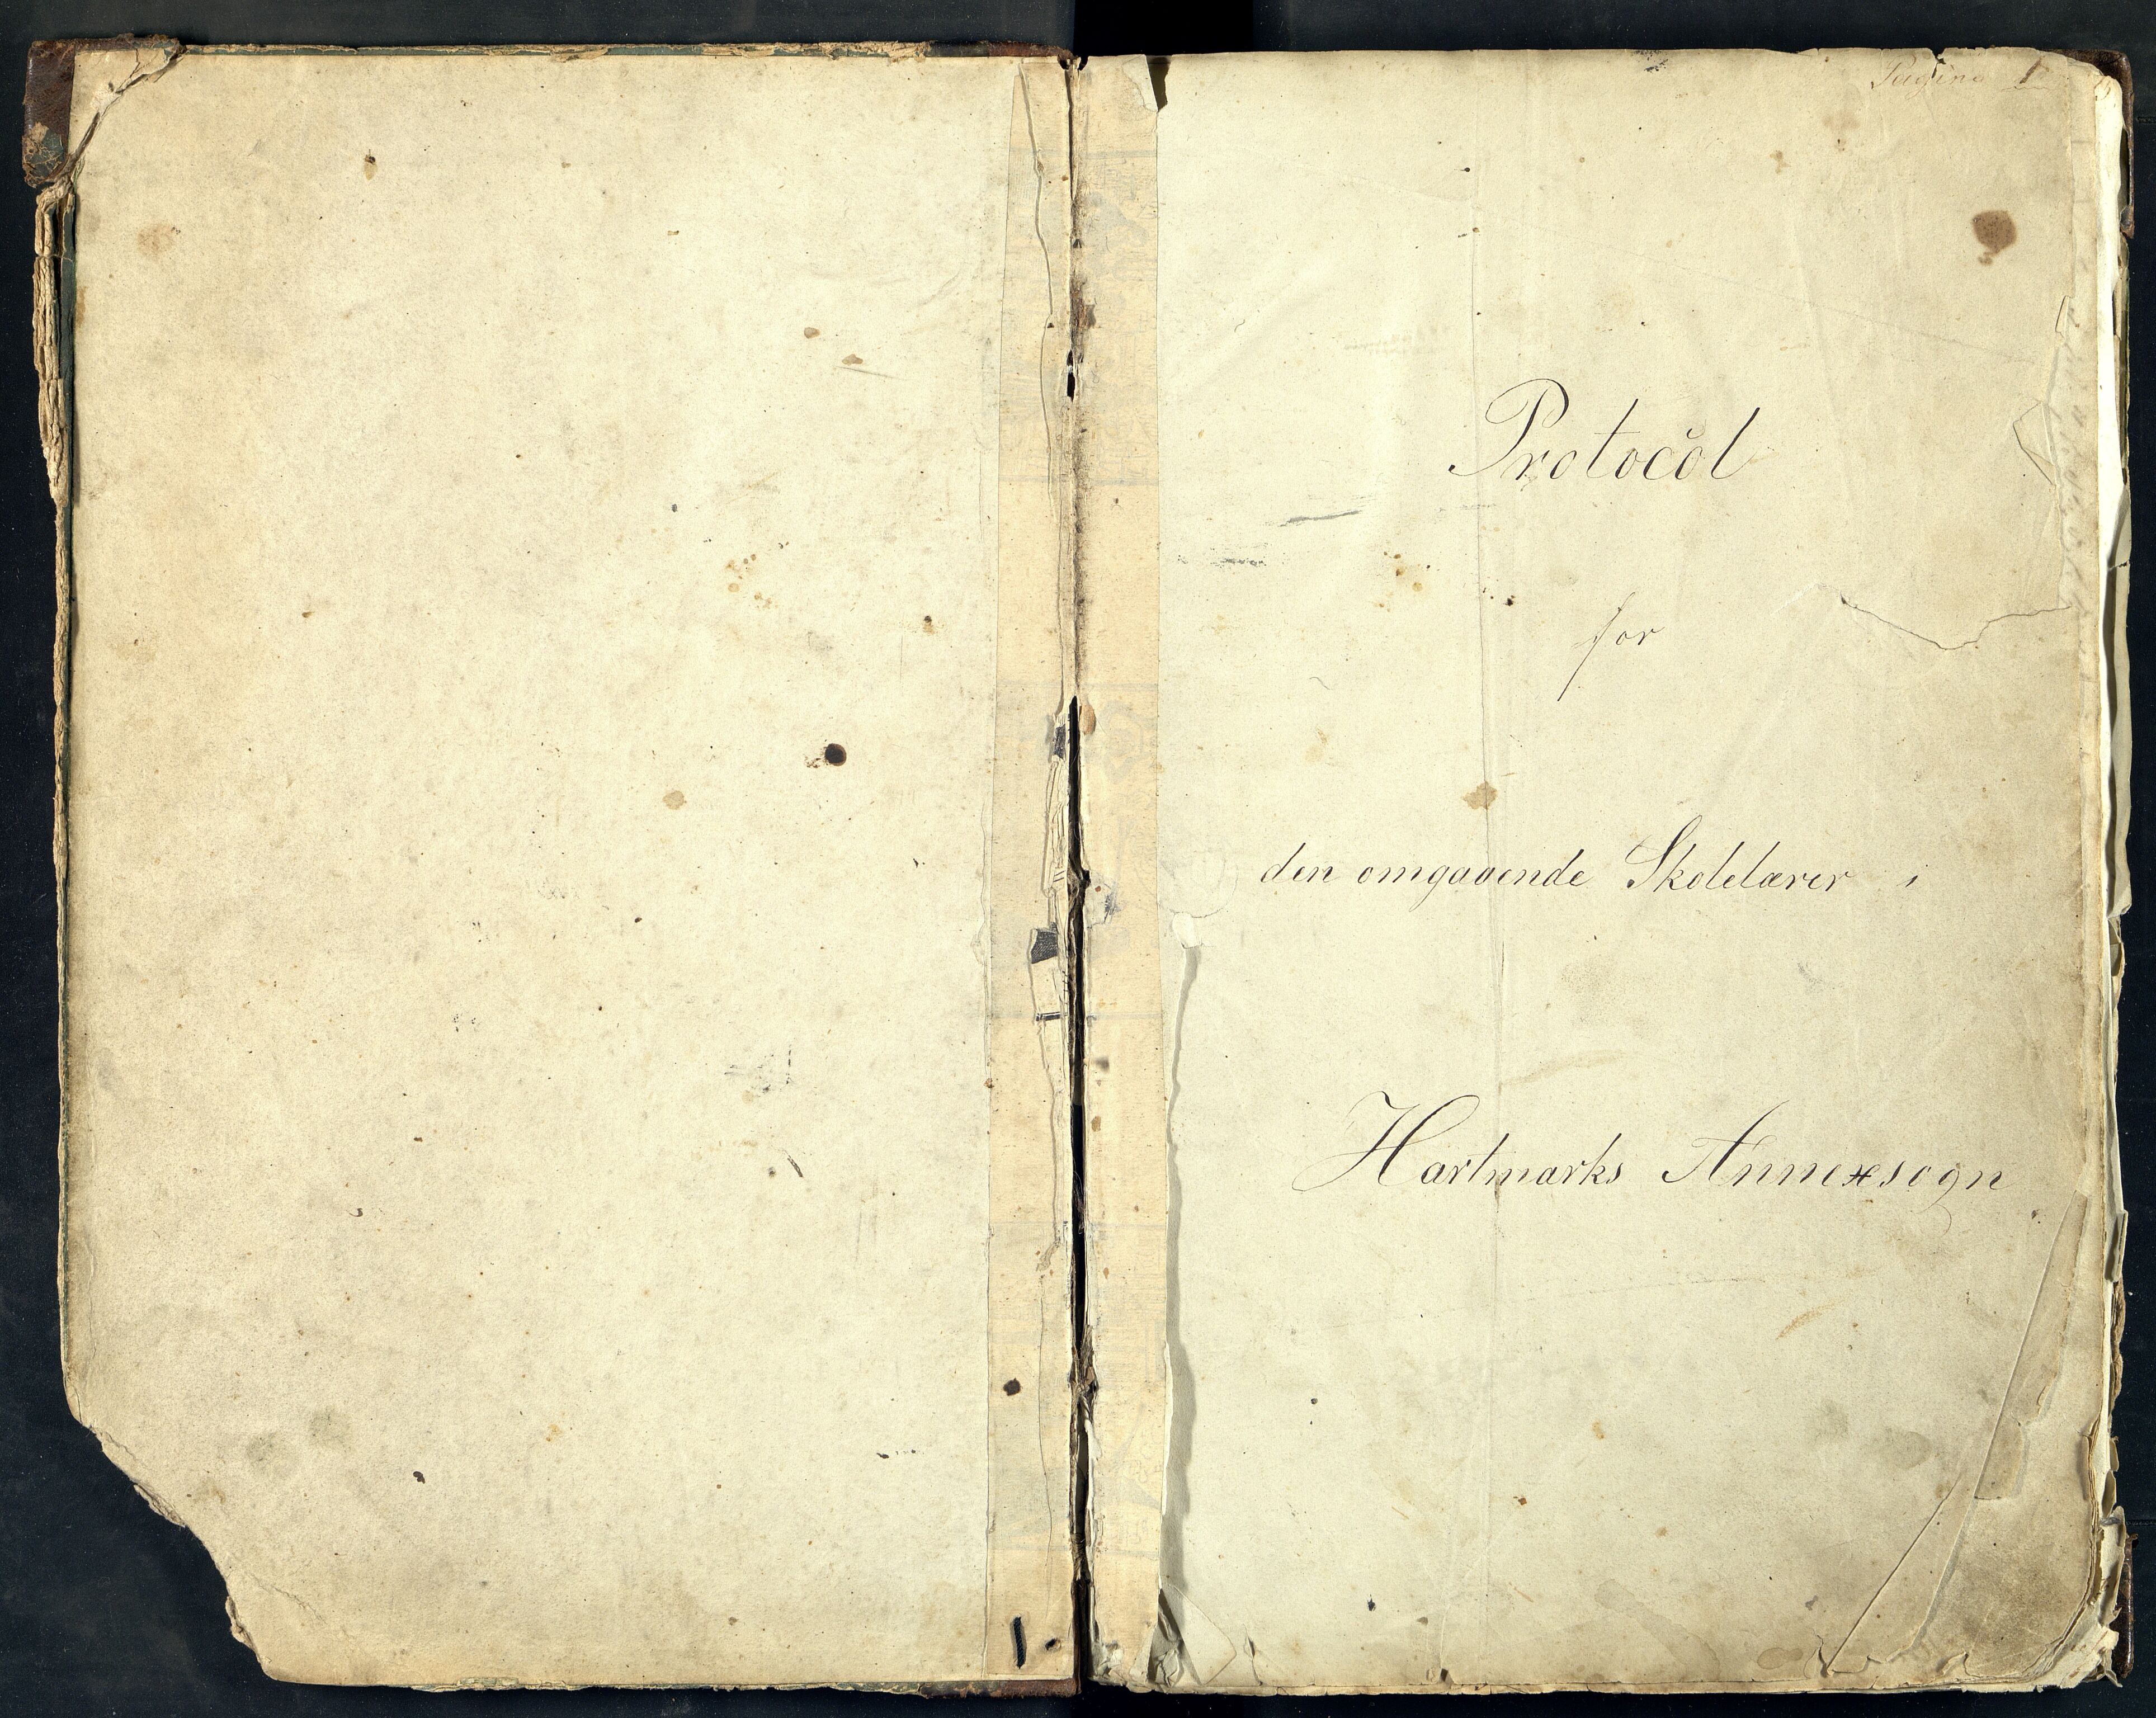 Pagina 1
Protocol
for
den omgaaende Skolelærer i
Hartmarks Annexsogn